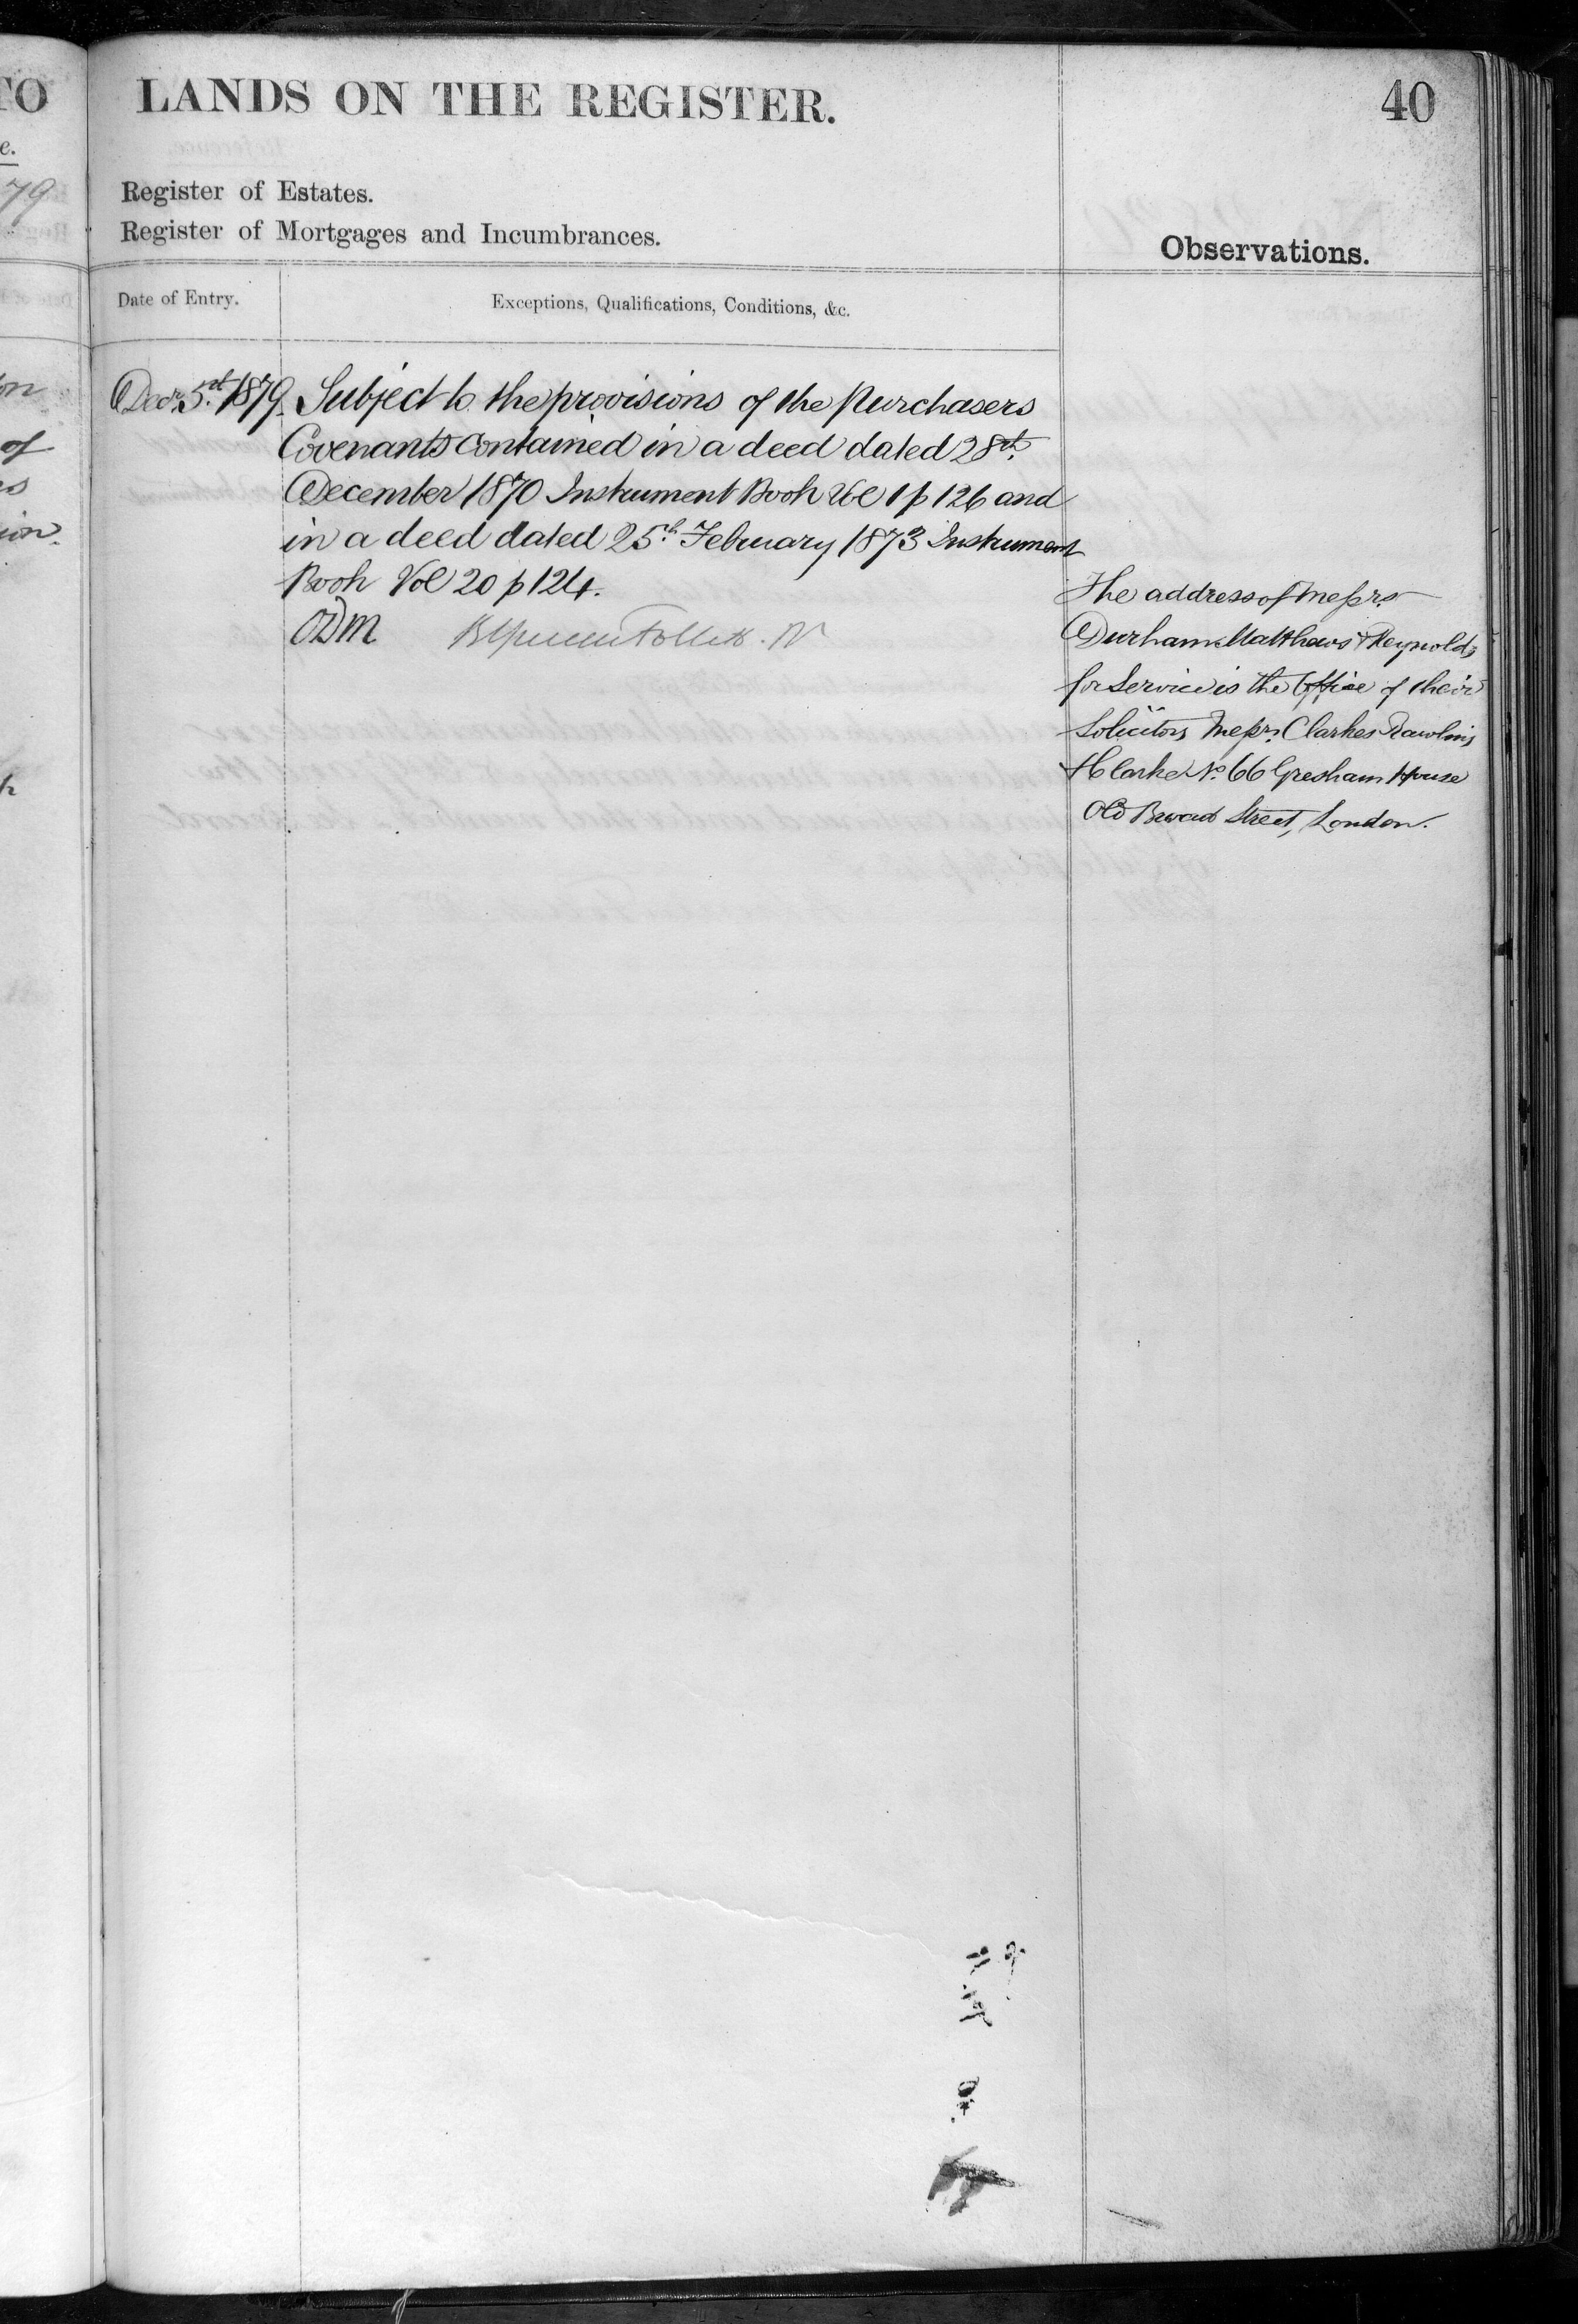 TO
LANDS ON THE REGISTER.
40
e.
79
Register of Estates.
Register of Mortgages and Incumbrances.
Observations.
Date of Entry.
Exceptions, Qualifications, Conditions, &c.
Decr. 5th 1879. Subject to the provisions of the Purchasers
Covenants contained in a deed dated 28th
December 1870 Instrument Book Vol 1 p 126 and
in a deed dated 25th February 1873 Instrument
Book Vol 20 p 124.
ODM
on
of
es
ion.
The address of Messrs
Durham Matthews & Reynolds
for Service is the Office of their
Solicitors Messrs. Clarkes Rawlins
& Clarke No. 66 Gresham House
Old Broad Street, London.